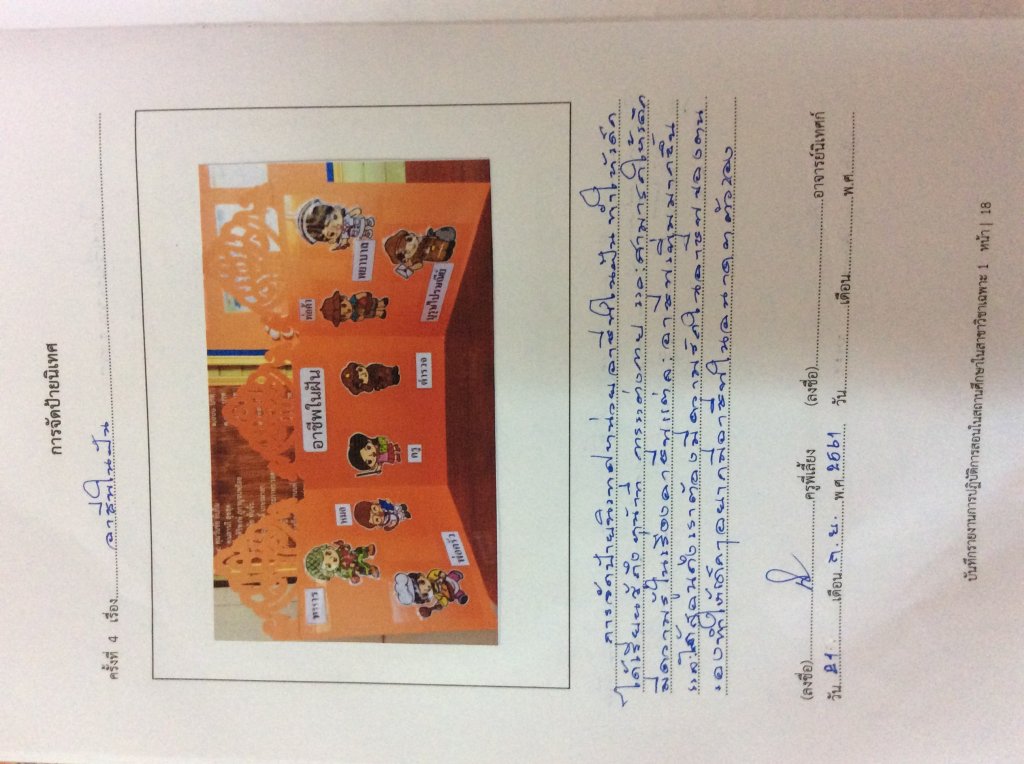 การจัดป้ายนิเทศ
ครั้งที่ 4 เรื่อง อาชีพในฝัน
อาชีพในฝัน
ทหาร
หมอ
ครู
ตำรวจ
พ่อค้า
พยาบาล
พ่อครัว
บุรุษไปรษณีย์
การจัดป้ายนิเทศหน่วยอาชีพในฝัน ทำให้เด็ก
ได้เรียนรู้ถึง หน้าที่ การแต่งกาย และสามารถให้เด็ก
มีความรู้ในเรื่องอาชีพแต่ละอาชีพเพิ่มมากขึ้น
และได้สอนให้เราต้องมีความรักในอาชีพของตน
เองทำให้เด็กๆอยากมีอาชีพในอนาคตตัวเอง
(ลงชื่อ) ครูพี่เลี้ยง (ลงชื่อ) อาจารย์นิเทศก์
วัน 21 เดือน ก.ย. พ.ศ. 2561 วัน เดือน พ.ศ.
บันทึกรายงานการปฏิบัติการสอนในสถานศึกษาในสาขาวิชาเฉพาะ 1 หน้า | 18